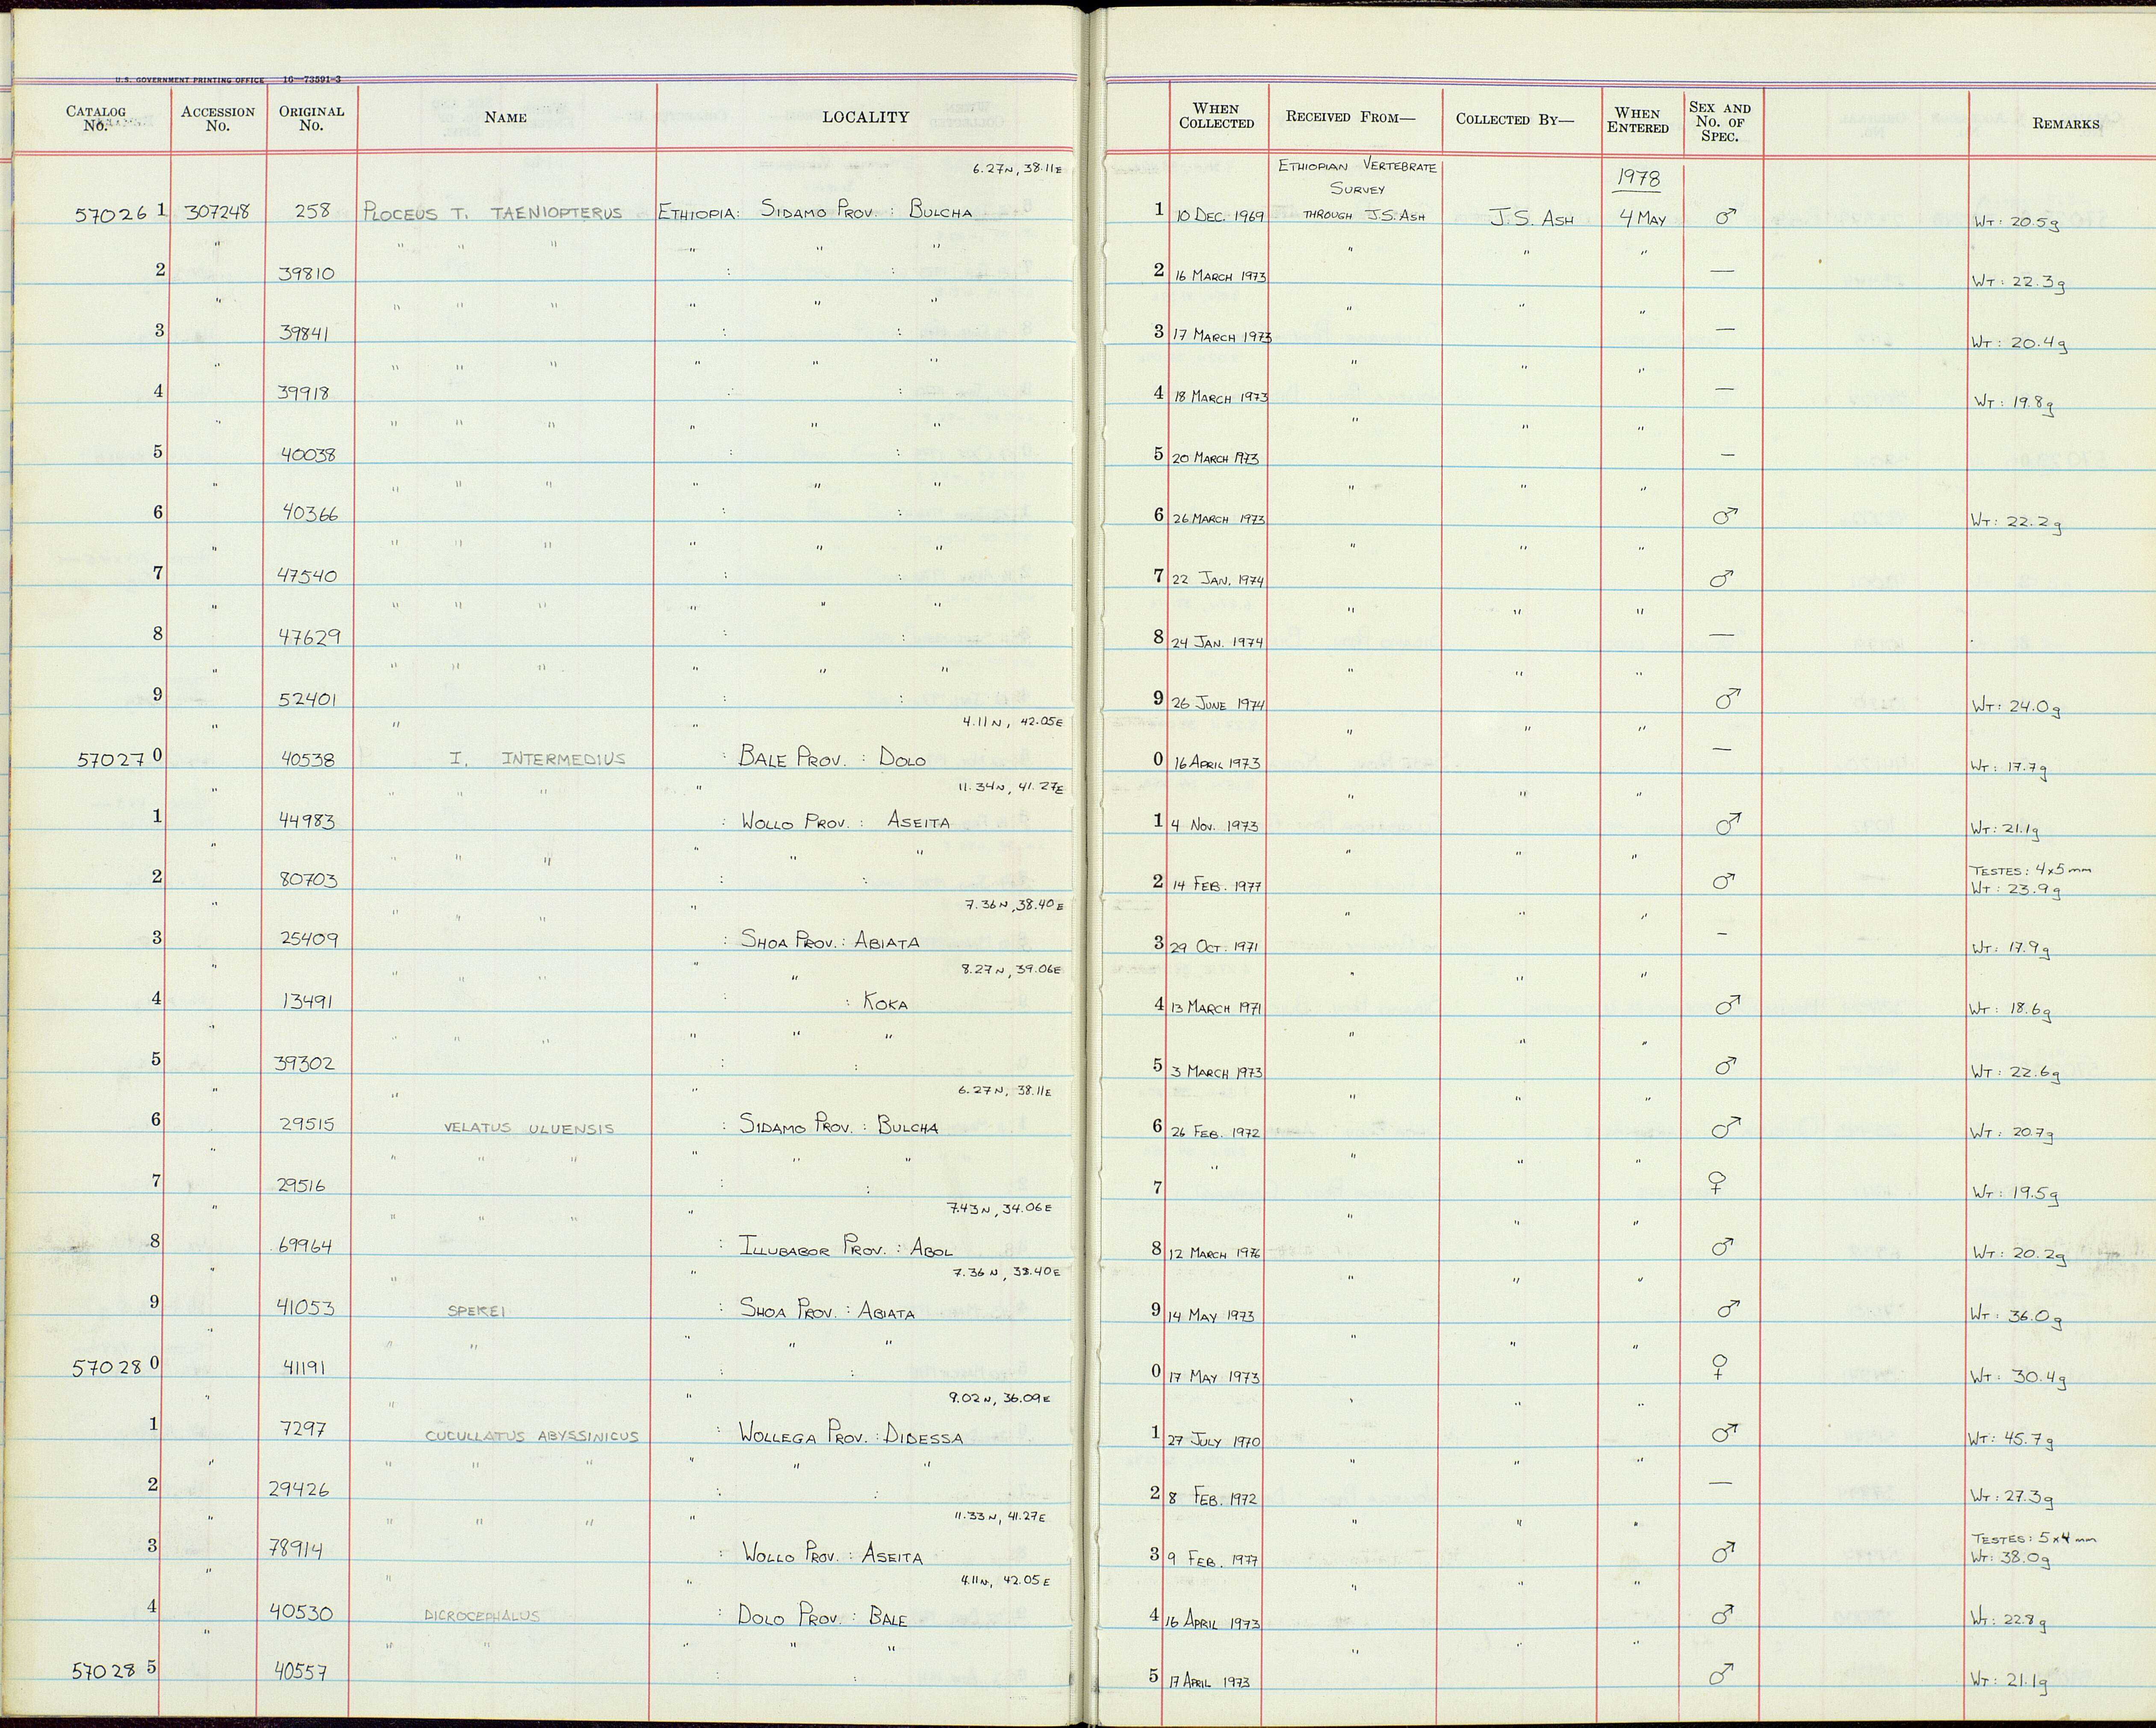 U.S. GOVERNMENT PRINTING OFFICE 16—73591-3
CATALOG No. ACCESSION No. ORIGINAL No. NAME LOCALITY WHEN COLLECTED RECEIVED FROM— COLLECTED BY— WHEN ENTERED SEX AND No. OF SPEC. REMARKS
6.27N, 38.11E ETHIOPIAN VERTEBRATE SURVEY 1978
57026 1 307248 258 PLOCEUS T. TAENIOPTERUS ETHIOPIA: SIDAMO PROV. : BULCHA 1 10 DEC. 1969 THROUGH J.S. ASH J.S. ASH 4 MAY ♂ WT: 20.5g
" " " " " " " " " "
2 39810 : : 2 16 MARCH 1973 — WT: 22.3g
" " " " " " " " " "
3 39841 : : 3 17 MARCH 1973 — WT: 20.4g
" " " " " " " " " "
4 39918 : : 4 18 MARCH 1973 — WT: 19.8g
" " " " " " " " " "
5 40038 : : 5 20 MARCH 1973 —
" " " " " " " " " "
6 40366 : : 6 26 MARCH 1973 ♂ WT: 22.2g
" " " " " " " " " "
7 47540 : : 7 22 JAN. 1974 ♂
" " " " " " " " " "
8 47629 : : 8 24 JAN. 1974 —
" " " " " " " " " "
9 52401 : : 9 26 JUNE 1974 ♂ WT: 24.0g
" " " 4.11N, 42.05E " " "
57027 0 40538 I. INTERMEDIUS : BALE PROV. : DOLO 0 16 APRIL 1973 — WT: 17.7g
" " " " " 11.34N, 41.27E " " "
1 44983 : WOLLO PROV. : ASEITA 1 4 NOV. 1973 ♂ WT: 21.1g
" " " " " " " " " " TESTES: 4x5mm
2 80703 : : 2 14 FEB. 1977 ♂ WT: 23.9g
" " " " " 7.36N, 38.40E " " "
3 25409 : SHOA PROV. : ABIATA 3 29 OCT. 1971 — WT: 17.9g
" " " " " " 8.27N, 39.06E " " "
4 13491 : : KOKA 4 13 MARCH 1971 ♂ WT: 18.6g
" " " " " " " " " "
5 39302 : : 5 3 MARCH 1973 ♂ WT: 22.6g
" " " 6.27N, 38.11E " " "
6 29515 VELATUS ULUENSIS : SIDAMO PROV. : BULCHA 6 26 FEB. 1972 ♂ WT: 20.7g
" " " " " " " " " " "
7 29516 : : 7 ♀ WT: 19.5g
" " " " " 7.43N, 34.06E " " "
8 69964 : ILLUBABOR PROV. : ABOL 8 12 MARCH 1976 ♂ WT: 20.2g
" " " 7.36N, 38.40E " " "
9 41053 SPEKEI : SHOA PROV. : ABIATA 9 14 MAY 1973 ♂ WT: 36.0g
" " " " " " " " "
57028 0 41191 : : 0 17 MAY 1973 ♀ WT: 30.4g
" " " 9.02N, 36.09E " " "
1 7297 CUCULLATUS ABYSSINICUS : WOLLEGA PROV. : DIDESSA 1 27 JULY 1970 ♂ WT: 45.7g
" " " " " " " " " "
2 29426 : : 2 8 FEB. 1972 — WT: 27.3g
" " " " " 11.33N, 41.27E " " " TESTES: 5x4mm
3 78914 : WOLLO PROV. : ASEITA 3 9 FEB. 1977 ♂ WT: 38.0g
" " " 4.11N, 42.05E " " "
4 40530 DICROCEPHALUS : DOLO PROV. : BALE 4 16 APRIL 1973 ♂ WT: 22.8g
" " " " " " " " "
57028 5 40557 : : 5 17 APRIL 1973 ♂ WT: 21.1g